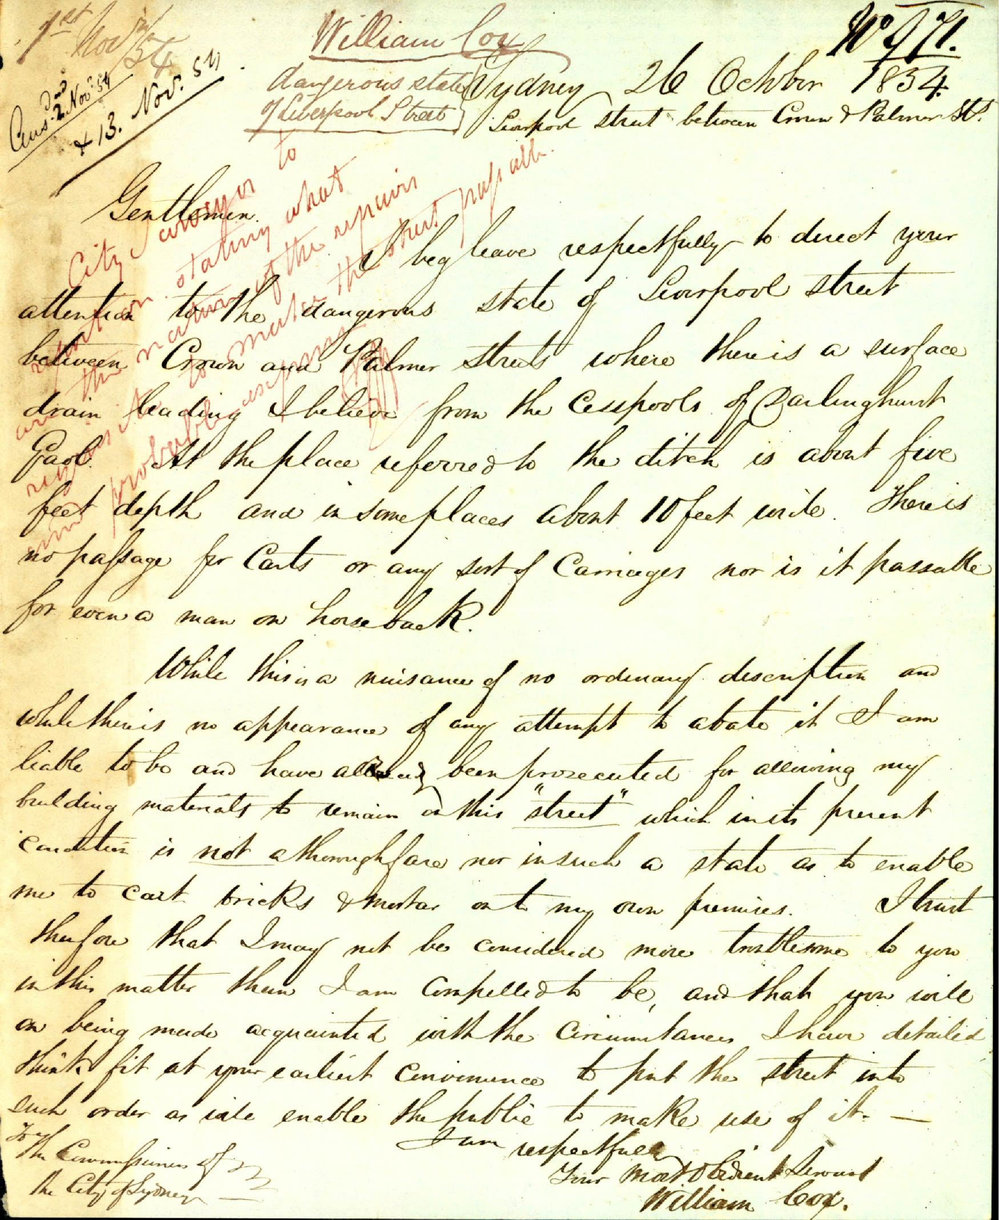 1st Nov 54
Ansd 2. Nov. 54
& 13. Nov. 54
William Cox
dangerous state
of Liverpool Street
No 971.
Sydney 26 October 1854.
Liverpool street between Crown & Palmer Sts.
City Surveyor to
report on stating what
are the nature of the repairs
requisite to make the street passable
and probable expense
Gentlemen.
I beg leave respectfully to direct your
attention to the dangerous state of Liverpool street
between Crown and Palmer Streets where there is a surface
drain leading I believe from the cesspools of Darlinghurst
Gaol. At the place referred to the ditch is about five
feet depth and in some places about 10 feet wide. There is
no passage for Carts or any sort of Carriages nor is it passable
for even a man on horseback.
While this is a nuisance of no ordinary description and
while there is no appearance of any attempt to abate it I am
liable to be and have already been prosecuted for allowing my
building materials to remain on this "street" which in its present
condition is not a thoroughfare nor in such a state as to enable
me to cart bricks & mortar onto my own premises. I trust
therefore that I may not be considered more troublesome to you
in this matter than I am compelled to be, and that you will
on being made acquainted with the circumstances I have detailed
think fit at your earliest convenience to put the street into
such order as will enable the public to make use of it. —
I am respectfully
Your Most Obedient Servant
William Cox.
To
The Commissioners of
the City of Sydney